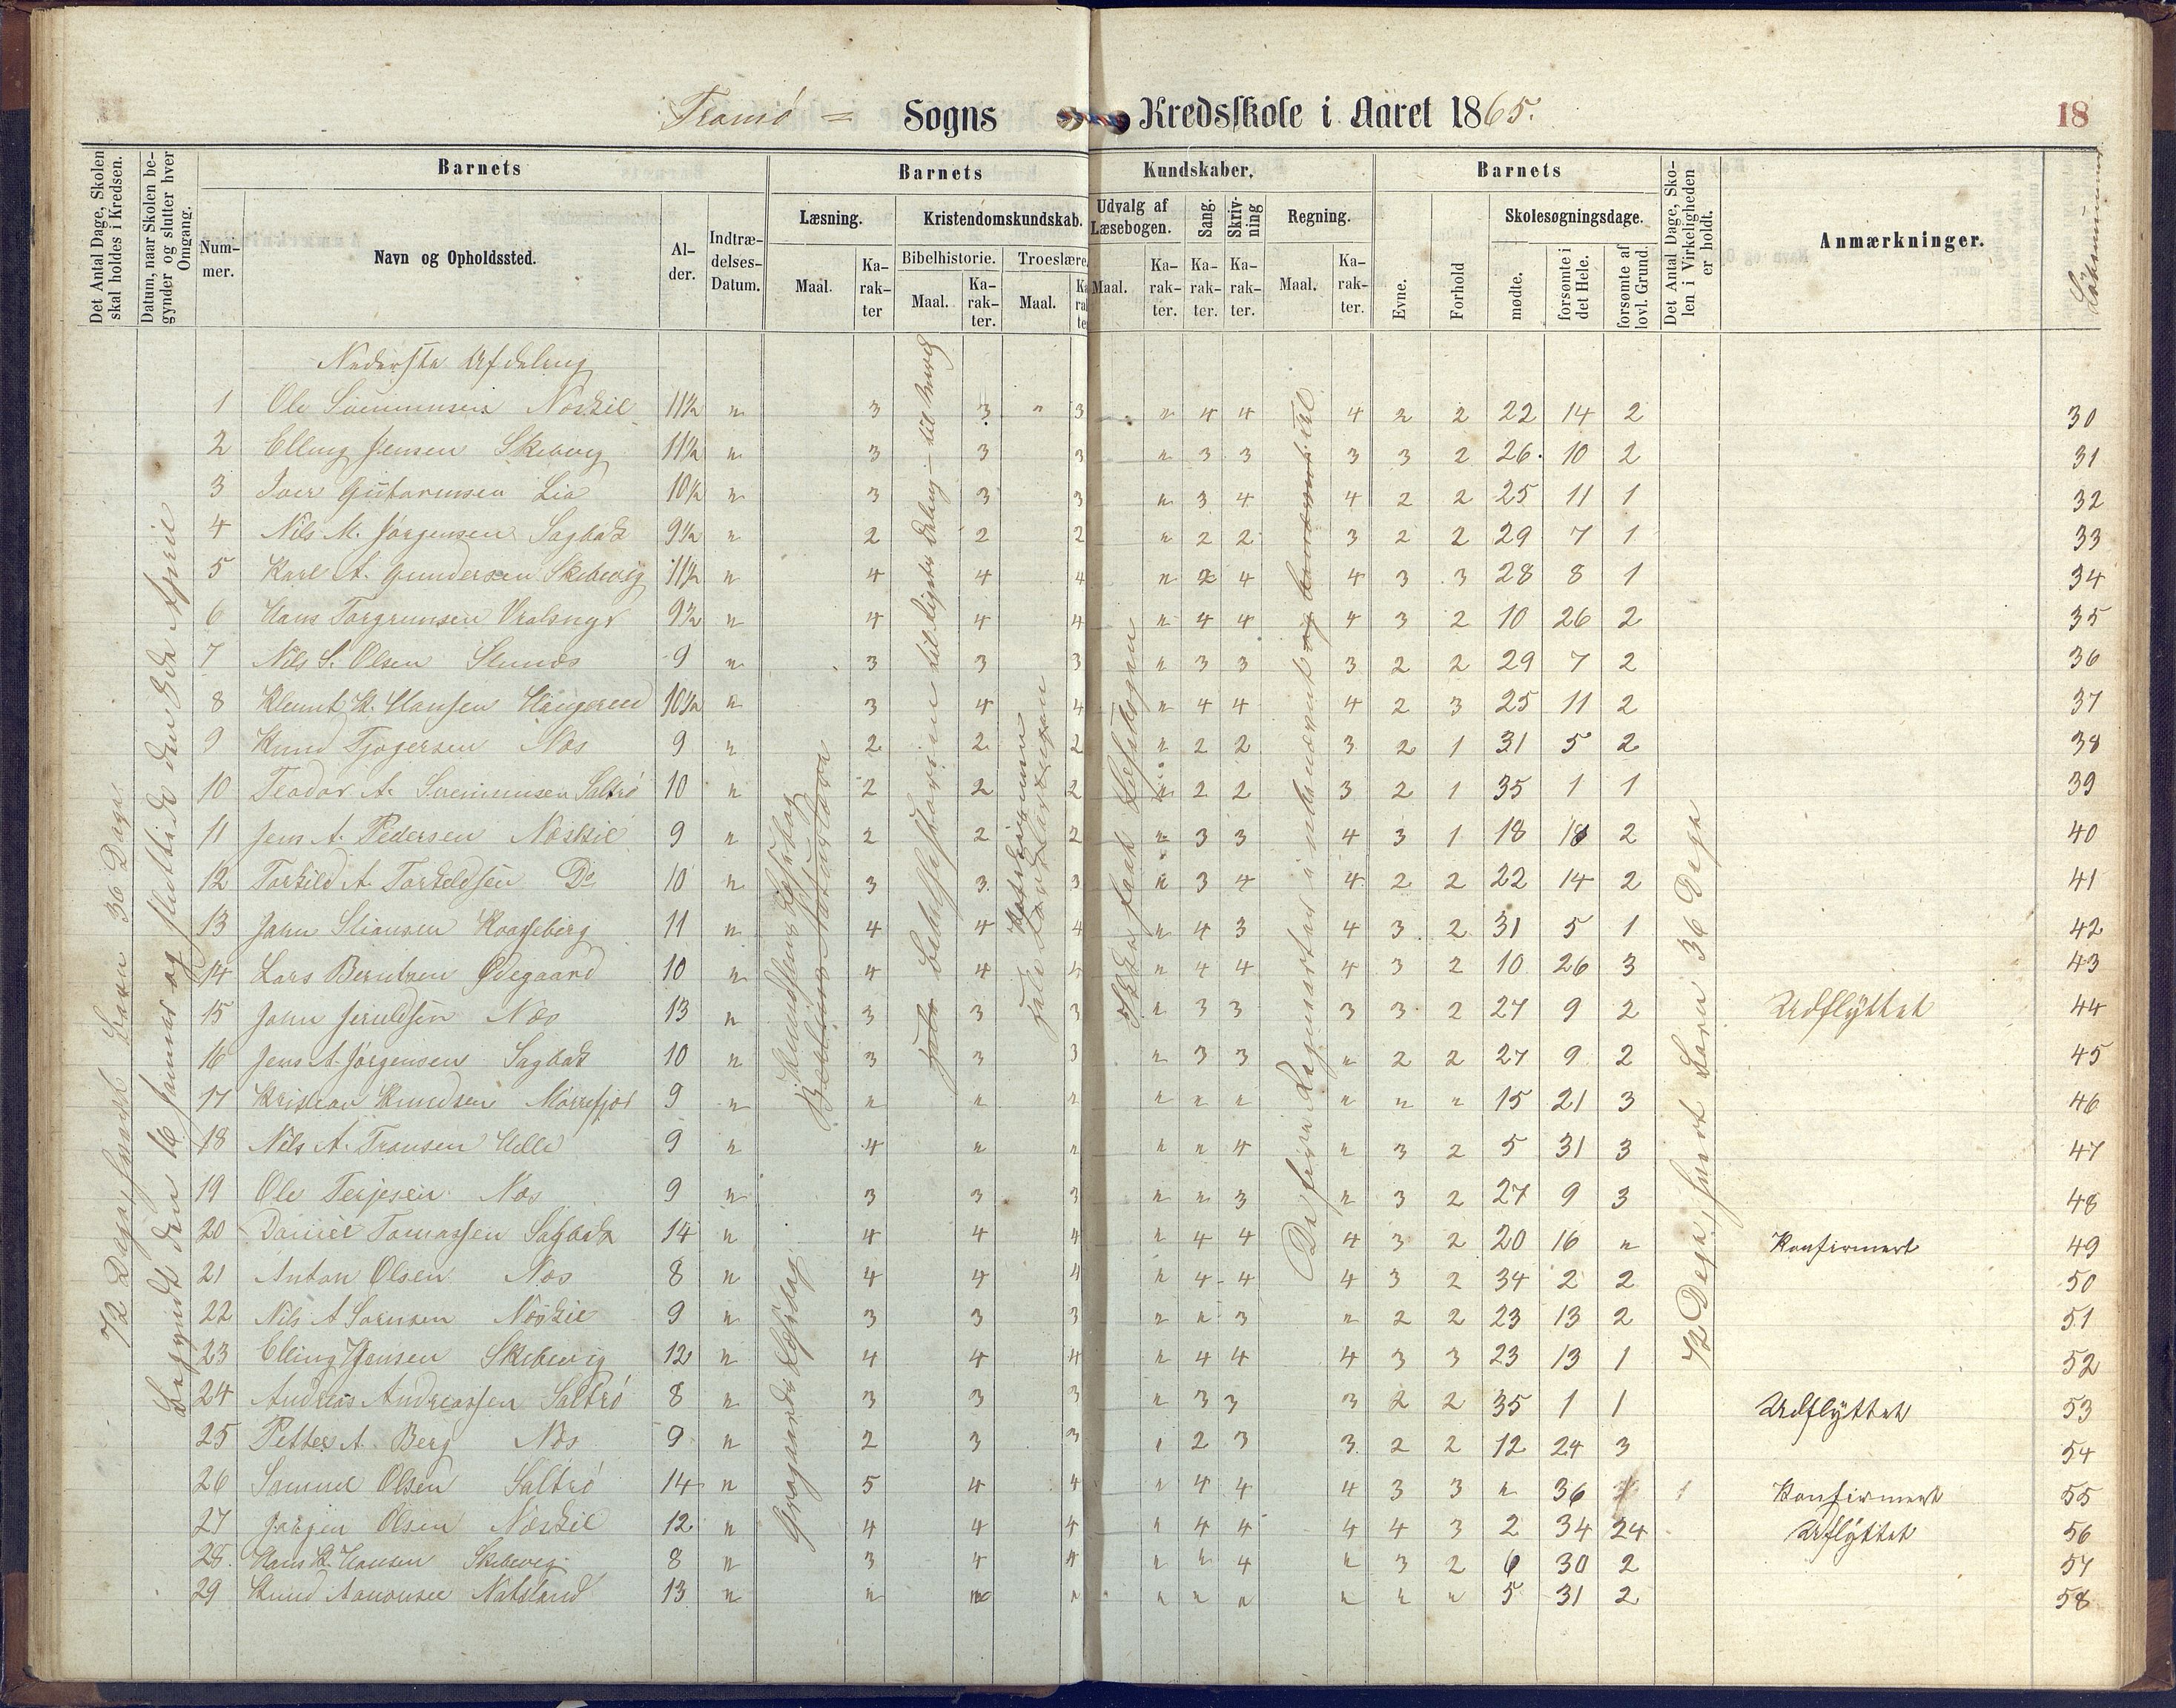 Tromö = Sogns Kredsskole i Aaret 1865.
18
Det Antal Dage, Skolen skal holdes i Kredsen.
Datum, naar Skolen begynder og slutter hver Omgang.
Barnets
Nummer.
Navn og Opholdssted.
Alder.
Indtrædelses-Datum.
Barnets Kundskaber.
Læsning.
Maal.
Karakter
Kristendomskundskab.
Bibelhistorie.
Maal.
Karakter.
Troeslære
Maal.
Karakter
Udvalg af Læsebogen.
Maal.
Karakter.
Sang.
Karakter.
Skrivning
Karakter.
Regning.
Maal.
Karakter.
Barnets
Evne.
Forhold
Skolesøgningsdage.
mødte.
forsømte i det Hele.
forsømte af lovl. Grund.
Det Antal Dage, Skolen i Virkeligheden er holdt.
Anmærkninger.
Löbenummer
Nederste Afdeling
1 Ole Svennunsen Næskil 11½ " 3 3 " 3 " 4 4 4 2 2 22 14 2 30
2 Elling Jensen Skibevig 11½ " 3 3 3 " 3 3 3 3 2 26 10 2 31
3 Iver Guttormsen Lia 10½ " 3 3 3 " 3 4 4 2 2 25 11 1 32
4 Nils M. Jörgensen Sagbak 9½ " 2 2 2 " 2 2 3 2 2 29 7 1 33
5 Karl A. Gundersen Skibevig 11½ " 4 4 4 " 2 4 4 3 3 28 8 1 34
6 Hans Torgrimsen Vralsnes 9½ " 4 4 4 " 4 4 4 3 2 10 26 2 35
7 Nils S. Olsen 9 " 3 3 3 " 3 3 3 2 2 29 7 2 36
8 Klemet K. Hansen 10½ " 3 4 4 " 4 4 4 2 3 25 11 2 37
9 Knud Tjögersen Næs 9 " 2 2 2 " 2 2 3 2 1 31 5 2 38
10 Teodor A. Svennunsen Saltrö 10 " 2 2 2 " 2 2 3 2 1 35 1 1 39
11 Jens A. Pedersen Næskil 9 " 2 2 2 " 3 3 4 3 1 18 18 2 40
12 Torkild A. Torkildsen Do 10 " 3 3 3 " 3 4 4 2 2 22 14 2 41
13 John Stiansen 11 " 4 4 4 " 4 3 4 3 2 31 5 1 42
14 Lars Berntsen Ødegaard 10 " 4 4 4 " 4 4 4 3 2 10 26 3 43
15 John Jeruldsen Næs 13 " 3 3 3 " 3 3 3 3 2 27 9 2 Udflyttet 44
16 Jens A. Jörgensen Sagbak 10 " 3 3 3 " 3 3 " 2 2 27 9 2 45
17 Kristian Knudsen Mörrefjær 9 " " " " " " " " " " 15 21 3 46
18 Nils A. Tronsen Helle 9 " 4 " " " " 4 " 3 2 5 31 3 47
19 Ole Terjesen Næs 9 " 3 3 3 " " 3 " 3 2 27 9 3 48
20 Daniel Tomassen Sagbak 14 " 4 4 4 " 4 4 4 3 2 20 16 " Konfirmert 49
21 Anton Olsen Næs 8 " 4 4 4 " 4 4 4 3 2 34 2 2 50
22 Nils A Sörensen Næskil 9 " 3 3 3 " " 3 " 2 2 23 13 2 51
23 Elling Hansen Skibevig 12 " 4 4 4 " 4 4 4 3 3 23 13 1 52
24 Andreas Andreassen Saltrö 8 " 3 3 3 " 3 3 3 2 2 35 1 1 Udflyttet 53
25 Petter A. Berg Næs 9 " 2 3 3 " 2 3 3 2 2 12 24 3 54
26 Samuel Olsen Saltrö 14 " 5 4 4 " 4 4 4 3 3 " 36 Konfirmert 55
27 Jörgen Olsen Næskil 12 " 4 4 4 " 4 4 4 4 3 2 34 24 Uflyttet 56
28. Hans K. Hansen Skibevig 8 " 3 4 4 " " 4 " 3 2 6 30 2 57
29 Knud Aanonsen Natstand 13 " " " " " " " " " " 5 31 2 58
72 Dage, hvert Barn 36 Dage.
Begyndt den 16 Januar og sluttede den April
Gragaards Læsebog
Bibelhistorien til
Skolen 72 Dage, hvert Barn 36 Dage
De fire Regnearter i